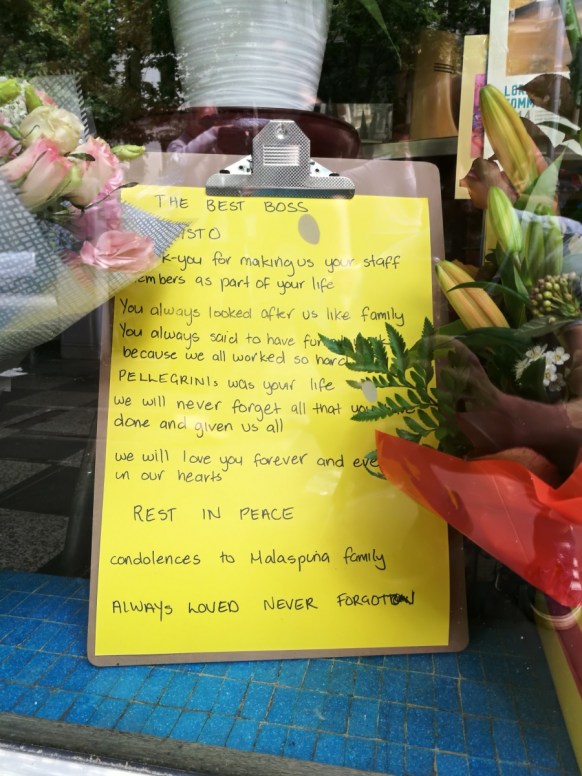 THE BEST BOSS
ISTO
K-you for making us your staff
embers as part of your life
You always looked after us like family
You always said to have fun
because we all worked so hard
PELLEGRINIs was your life
we will never forget all that you
done and given us all
we will love you forever and eve
in our hearts
REST IN PEACE
condolences to Malaspina family
ALWAYS LOVED NEVER FORGOTTEN